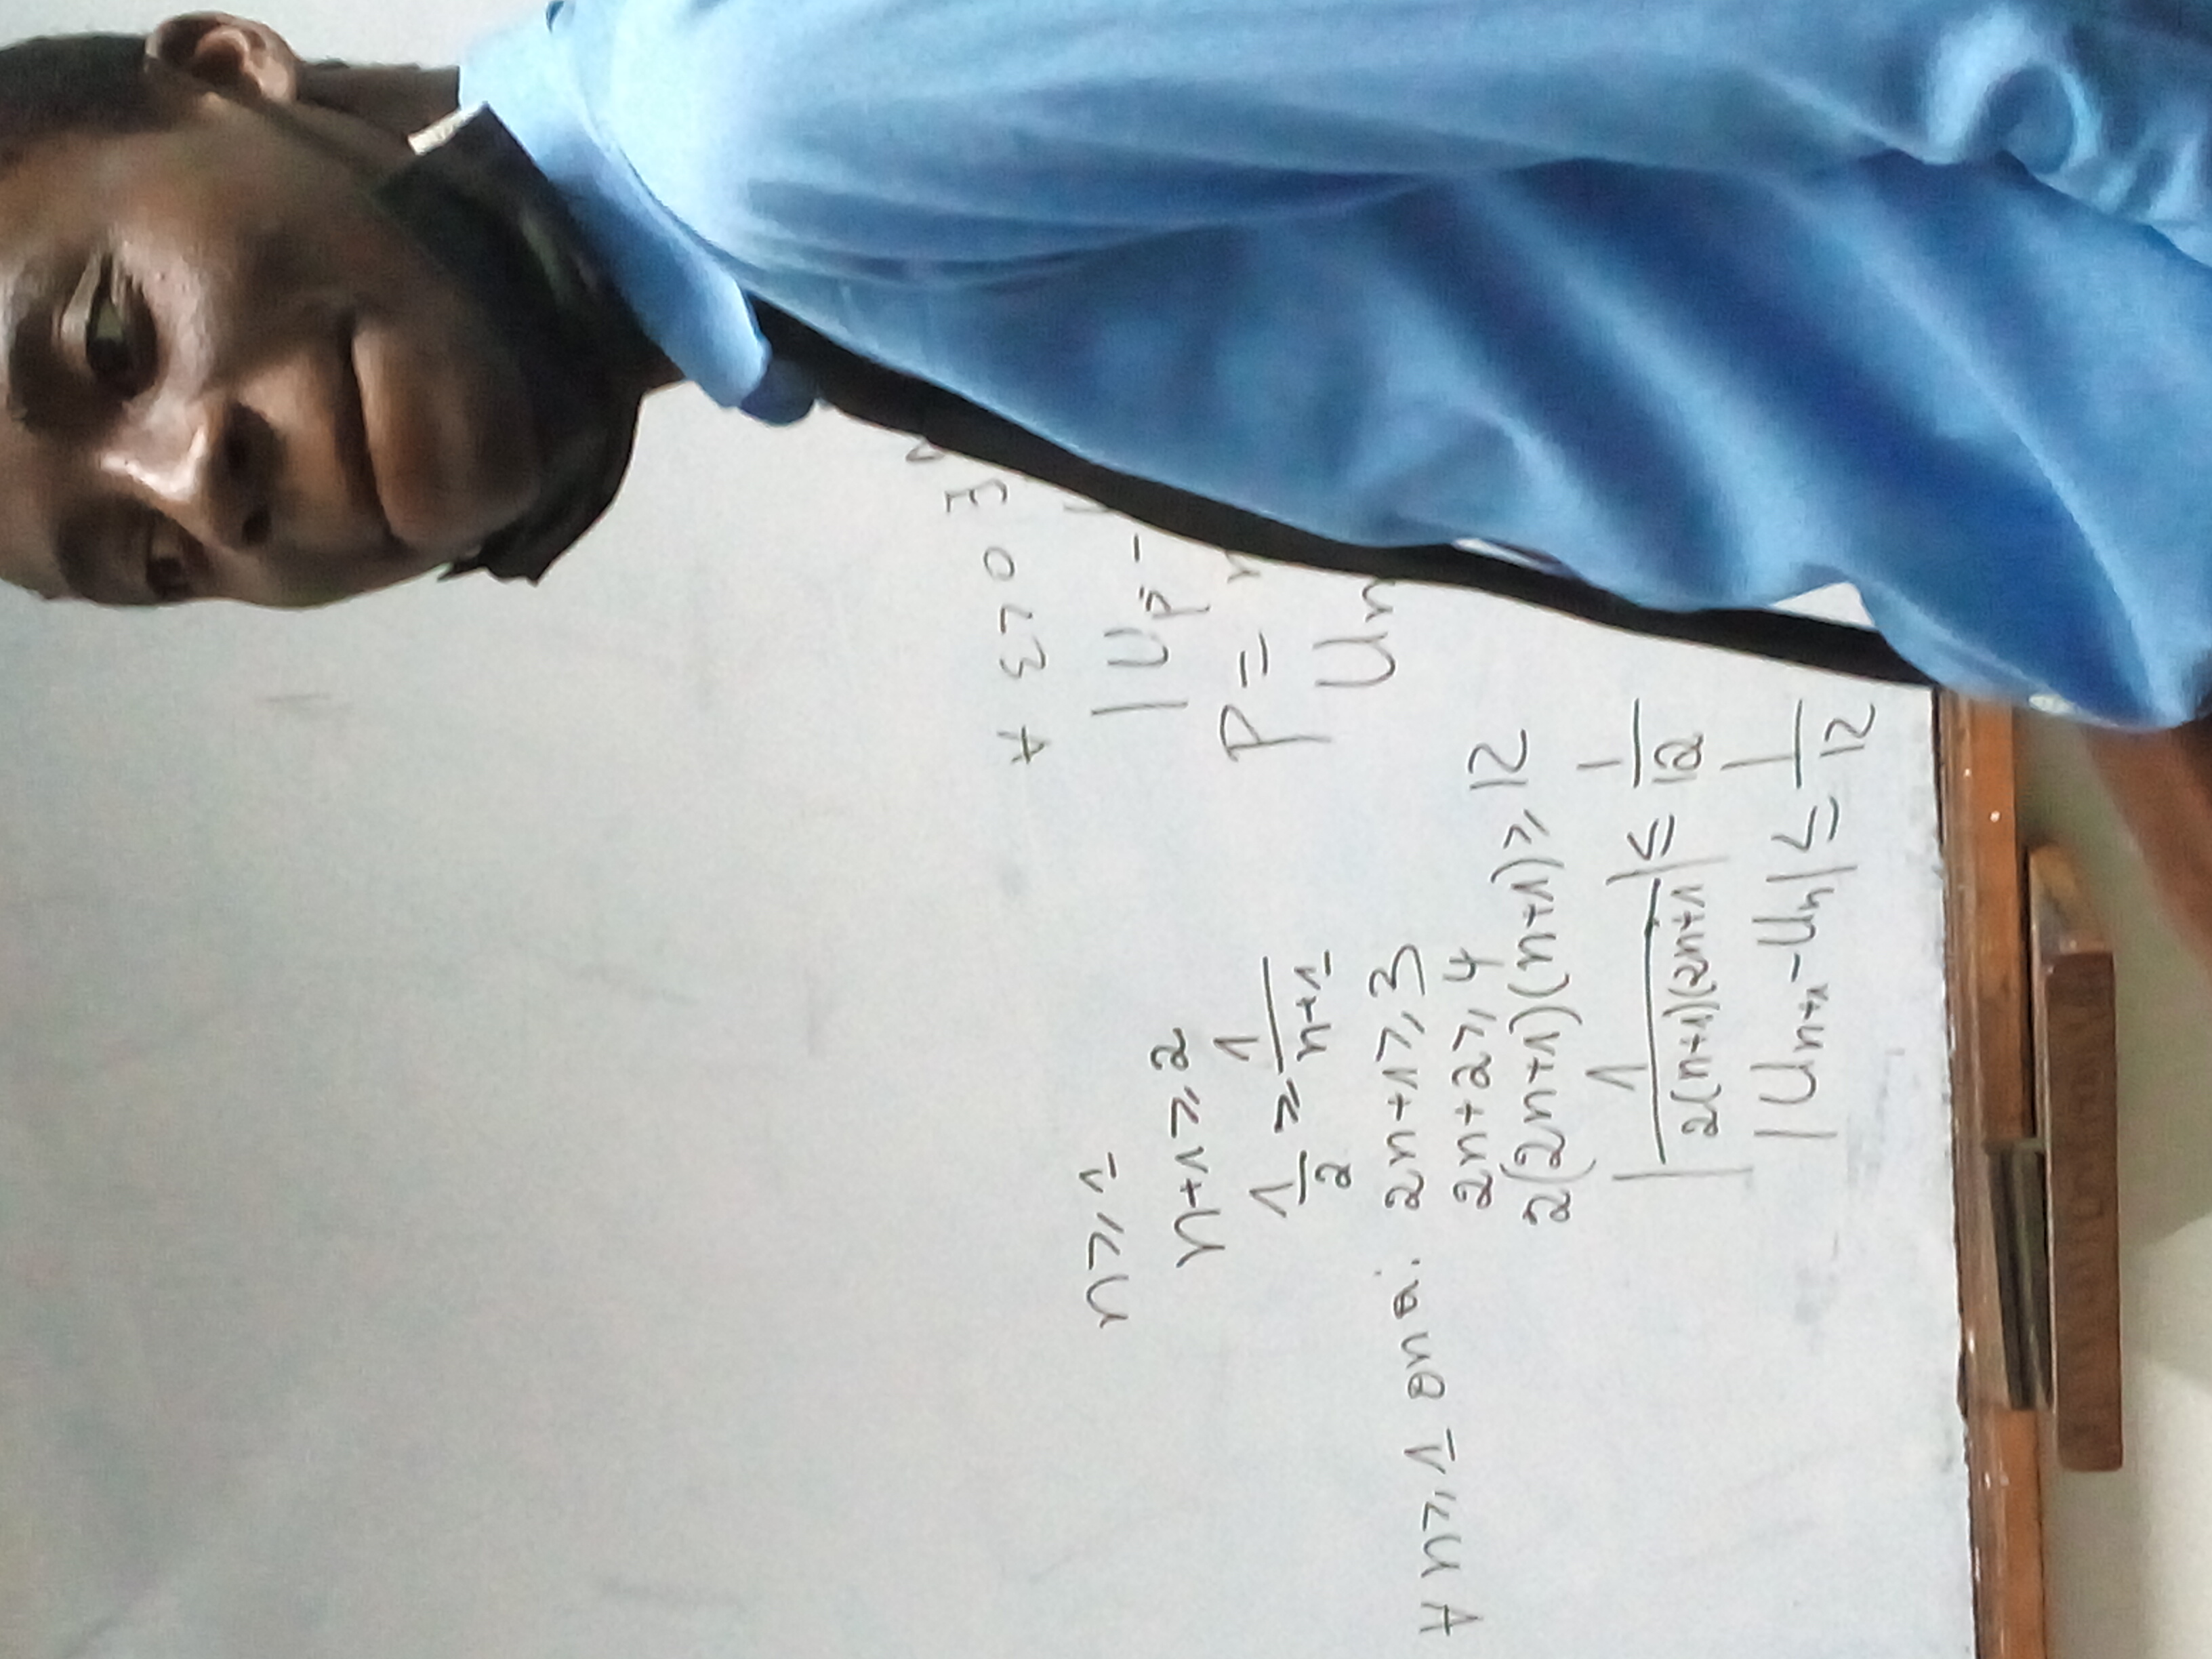 n ≥ 1
n+1 ≥ 2
1/2 ≥ 1/(n+1)
∀ n ≥ 1 on a: 2n+1 ≥ 3
2n+2 ≥ 4
2(2n+1)(n+1) ≥ 12
|1/(2(n+1)(2n+1))| ≤ 1/12
|Un+1 - Un| ≤ 1/12
∀ ε > 0 ∃
|Up -
P =
Un